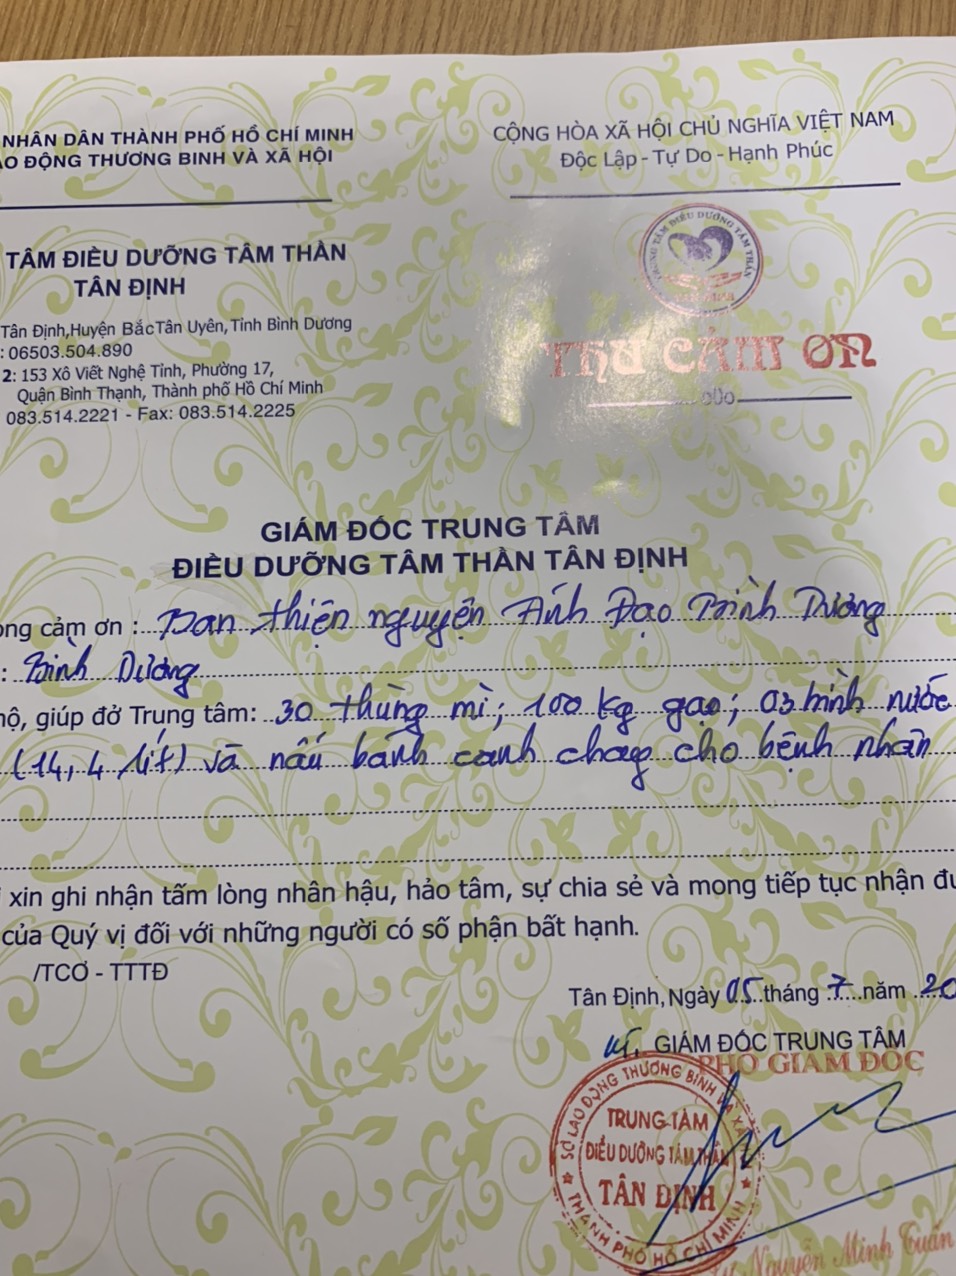 NHÂN DÂN THÀNH PHỐ HỒ CHÍ MINH
AO ĐỘNG THƯƠNG BINH VÀ XÃ HỘI
TÂM ĐIỀU DƯỠNG TÂM THẦN
TÂN ĐỊNH
Tân Định,Huyện BắcTân Uyên,Tỉnh Bình Dương
: 06503.504.890
2: 153 Xô Viết Nghệ Tĩnh, Phường 17,
Quận Bình Thạnh, Thành phố Hồ Chí Minh
083.514.2221 - Fax: 083.514.2225
CỘNG HÒA XÃ HỘI CHỦ NGHĨA VIỆT NAM
Độc Lập - Tự Do - Hạnh Phúc
TRUNG TÂM ĐIỀU DƯỠNG TÂM THẦN
TÂN ĐỊNH
THƯ CẢM ƠN
oOo
GIÁM ĐỐC TRUNG TÂM
ĐIỀU DƯỠNG TÂM THẦN TÂN ĐỊNH
ọng cảm ơn : Ban thiện nguyện Ánh Đạo Bình Dương
: Bình Dương
hộ, giúp đở Trung tâm: 30 thùng mì; 100 kg gạo; 03 bình nước
(14,4 lít) và nấu bánh canh chay cho bệnh nhân
i xin ghi nhận tấm lòng nhân hậu, hảo tâm, sự chia sẻ và mong tiếp tục nhận đư
của Quý vị đối với những người có số phận bất hạnh.
/TCƠ - TTTĐ
Tân Định, Ngày 05 tháng 7 năm 20
KT. GIÁM ĐỐC TRUNG TÂM
PHÓ GIÁM ĐỐC
SỞ LAO ĐỘNG THƯƠNG BINH VÀ XÃ
TRUNG TÂM
ĐIỀU DƯỠNG TÂM THẦN
TÂN ĐỊNH
THÀNH PHỐ HỒ CHÍ MINH
Nguyễn Minh Tuấn